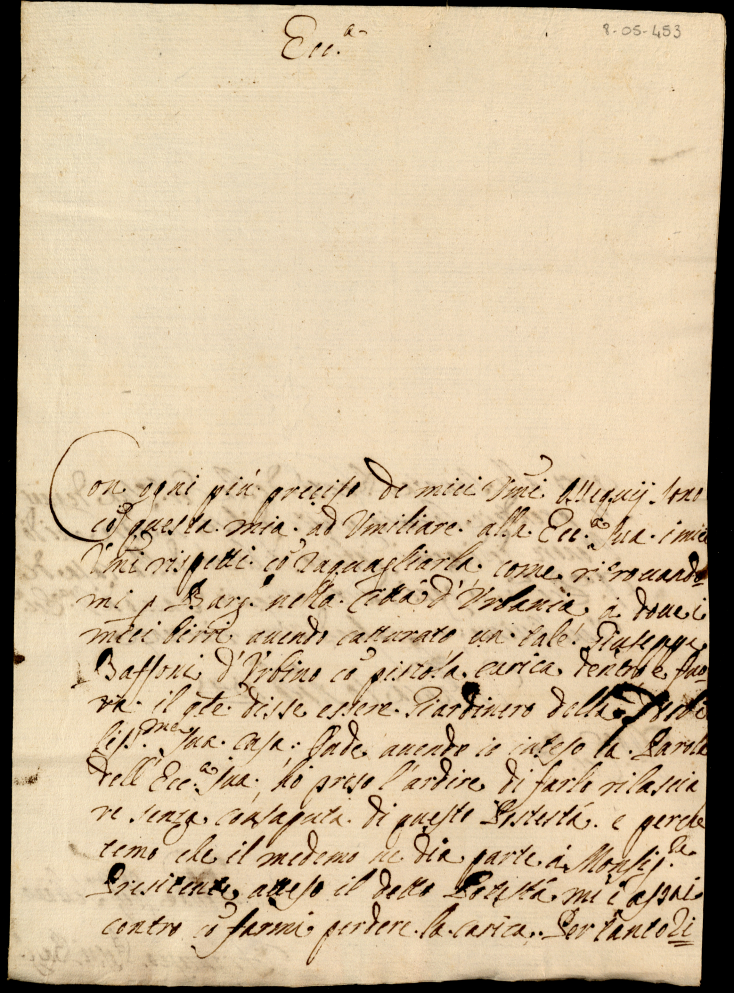 8-05-453
Ecc.a
Con ogni più preciso de miei Vmi Ossequij sono
cō questa mia ad Vmiliare alla Ecc.a Sua i miei
Vmi rispetti cō raguagliarla come ritrouando
mi p Barg.o nella Città d'Vrbania à doue i
miei birri auendo catturato un tale Giuseppe
Baffoni d'Vrbino cō pistola carica dentro e fuo
ra il qle disse essere Giardinero della
Sua casa: Onde auendo io inteso la Parola
dell'Ecc.a Sua, hò preso l'ardire di farlo rilascia
re senza consaputa di questo Potestà e perche
temo che il medemo ne dia parte à Monsig.re
Presidente atteso il detto Potestà mi è assai
contro cō farmi perdere la carica. Per tanto li